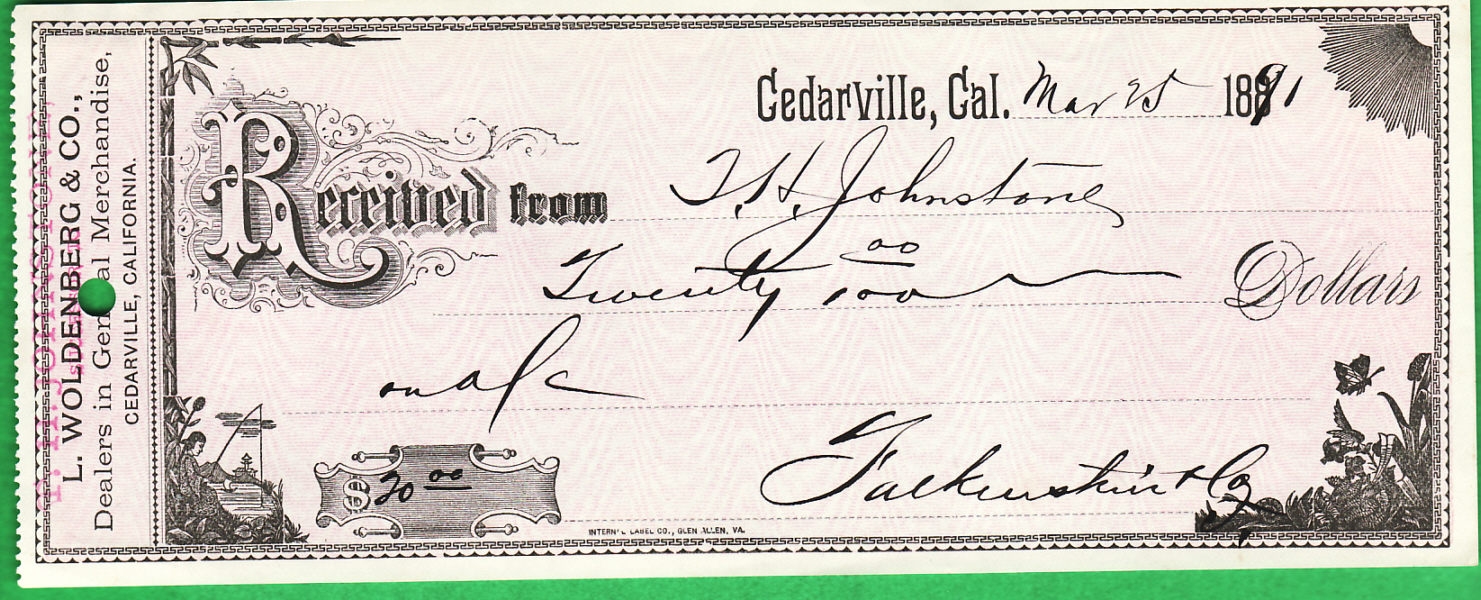 L. WOLDENBERG & CO.,
Dealers in General Merchandise,
CEDARVILLE, CALIFORNIA.
Cedarville, Cal. Mar 25 1891
Received from T. H. Johnstone
Twenty 00/100 Dollars
on a/c
$20 00
Falkenstein & Co
INTERN'L LABEL CO., GLEN ALLEN, VA.